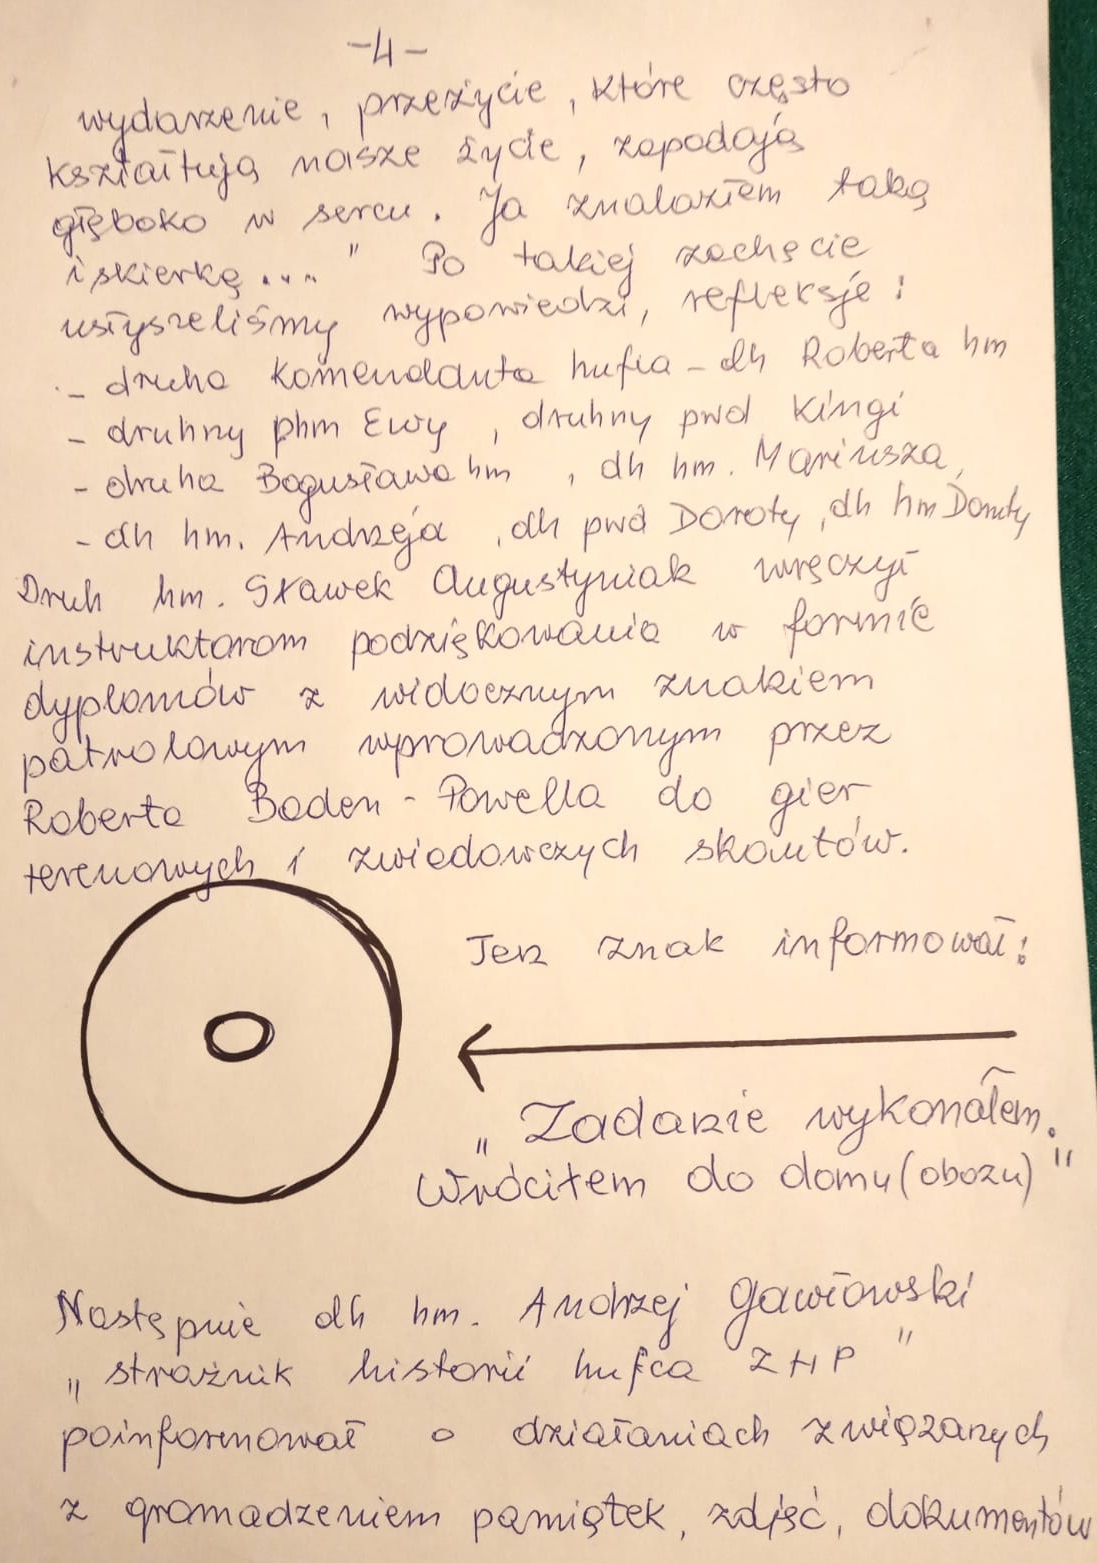 -4-
wydarzenie, przeżycie, które często
kształtują nasze życie, zapadają
głęboko w sercu. Ja znalazłem taką
iskierkę...." Po takiej zachęcie
usłyszeliśmy wypowiedzi, refleksje:
- druha Komendanta hufca - dh Roberta hm
- druhny phm Ewy, druhny pwd Kingi
- druha Bogusława hm, dh hm. Mariusza,
- dh hm. Andrzeja, dh pwd Doroty, dh hm Danuty
Druh hm. Sławek Augustyniak wręczył
instruktorom podziękowania w formie
dyplomów z widocznym znakiem
patrolowym wprowadzonym przez
Roberta Baden - Powella do gier
terenowych i zwiadowczych skautów.
Ten znak informował:
"Zadanie wykonałem.
Wróciłem do domu (obozu)"
Następnie dh hm. Andrzej Gawłowski
"strażnik historii hufca ZHP"
poinformował o działaniach związanych
z gromadzeniem pamiątek, zdjęć, dokumentów